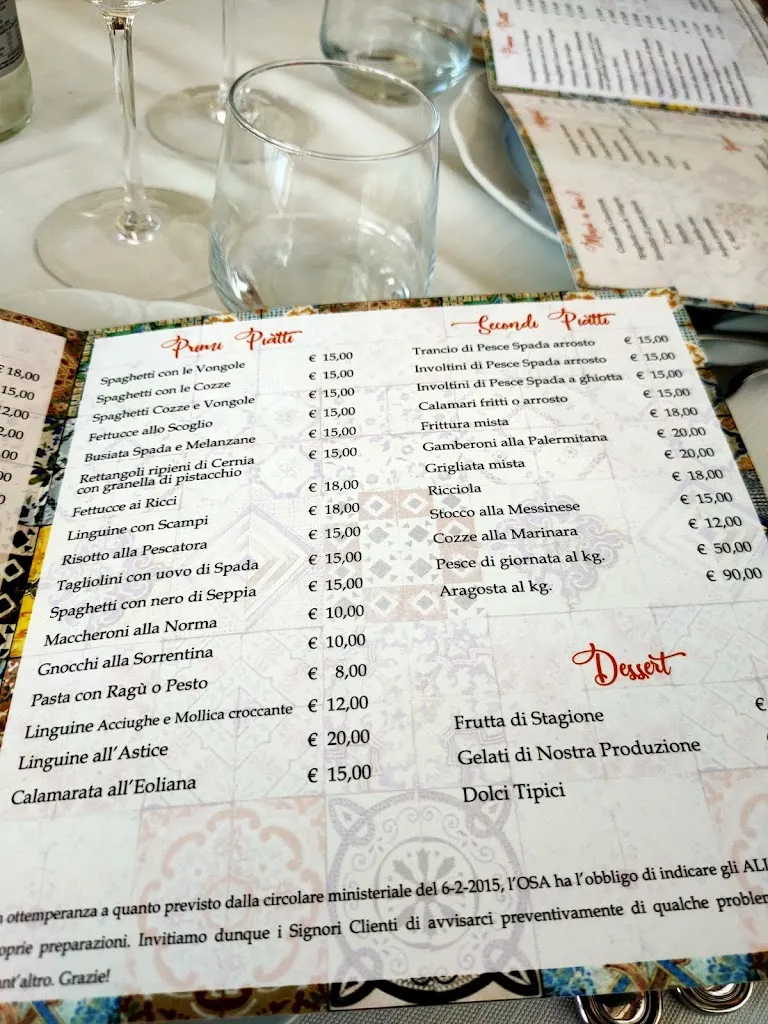 € 18,00
15,00
12,00
2,00
00
0
Primi Piatti
Spaghetti con le Vongole € 15,00
Spaghetti con le Cozze € 15,00
Spaghetti Cozze e Vongole € 15,00
Fettucce allo Scoglio € 15,00
Busiata Spada e Melanzane € 15,00
Rettangoli ripieni di Cernia
con granella di pistacchio € 15,00
Fettucce ai Ricci € 18,00
Linguine con Scampi € 18,00
Risotto alla Pescatora € 15,00
Tagliolini con uovo di Spada € 15,00
Spaghetti con nero di Seppia € 15,00
Maccheroni alla Norma € 10,00
Gnocchi alla Sorrentina € 10,00
Pasta con Ragù o Pesto € 8,00
Linguine Acciughe e Mollica croccante € 12,00
Linguine all'Astice € 20,00
Calamarata all'Eoliana € 15,00
Secondi Piatti
Trancio di Pesce Spada arrosto € 15,00
Involtini di Pesce Spada arrosto € 15,00
Involtini di Pesce Spada a ghiotta € 15,00
Calamari fritti o arrosto € 15,00
Frittura mista € 18,00
Gamberoni alla Palermitana € 20,00
Grigliata mista € 20,00
Ricciola € 18,00
Stocco alla Messinese € 15,00
Cozze alla Marinara € 12,00
Pesce di giornata al kg. € 50,00
Aragosta al kg. € 90,00
Dessert
Frutta di Stagione €
Gelati di Nostra Produzione
Dolci Tipici
ottemperanza a quanto previsto dalla circolare ministeriale del 6-2-2015, l'OSA ha l'obbligo di indicare gli ALL
oprie preparazioni. Invitiamo dunque i Signori Clienti di avvisarci preventivamente di qualche problem
ant'altro. Grazie!